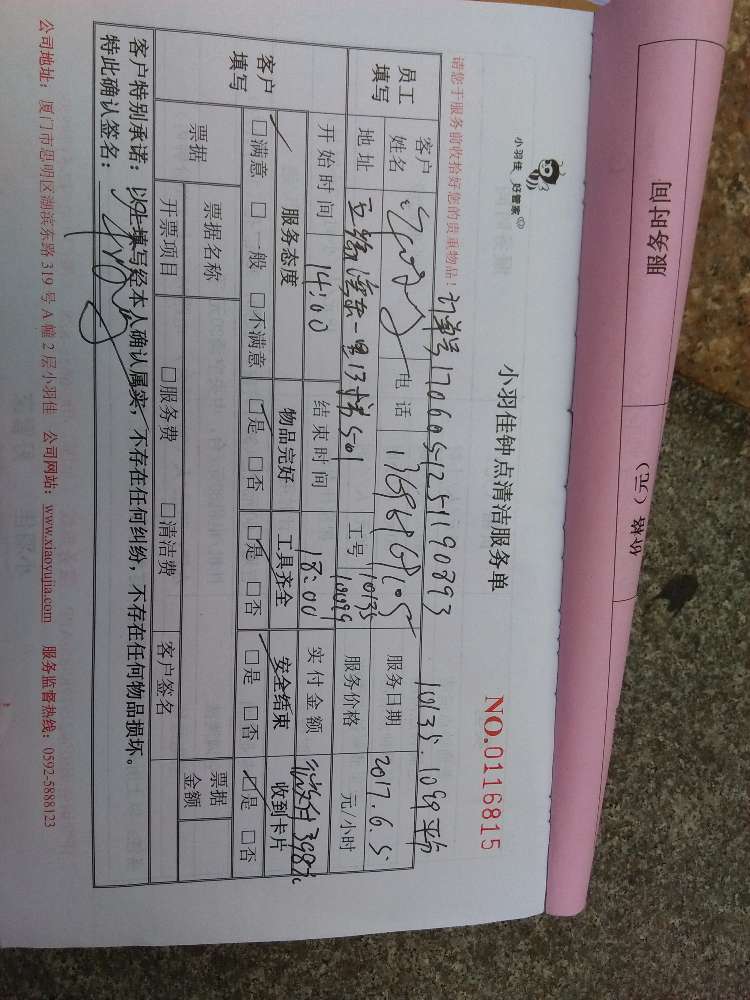 服务时间
价格（元）
小羽佳 好管家
小羽佳钟点清洁服务单
NO.0116815
请您于服务前收拾好您的贵重物品！
订单号1706051251190893
10135.1099
员工填写
客户姓名
电话
服务日期
2017.6.5
地址
一里13号501
工号
10135
1099
服务价格
元/小时
客户填写
开始时间
14:00
结束时间
18:00
实付金额
398元
服务态度
物品完好
工具齐全
安全结束
收到卡片
□满意 □一般 □不满意
□是 □否
□是 □否
□是 □否
□是 □否
票据
票据名称
票据金额
开票项目
□服务费 □清洁费
客户签名
客户特别承诺：以上填写经本人确认属实，不存在任何纠纷，不存在任何物品损坏。
特此确认签名：
公司地址：厦门市思明区湖滨东路319号A幢2层小羽佳 公司网站：www.xiaoyujia.com 服务监督热线：0592-5888123